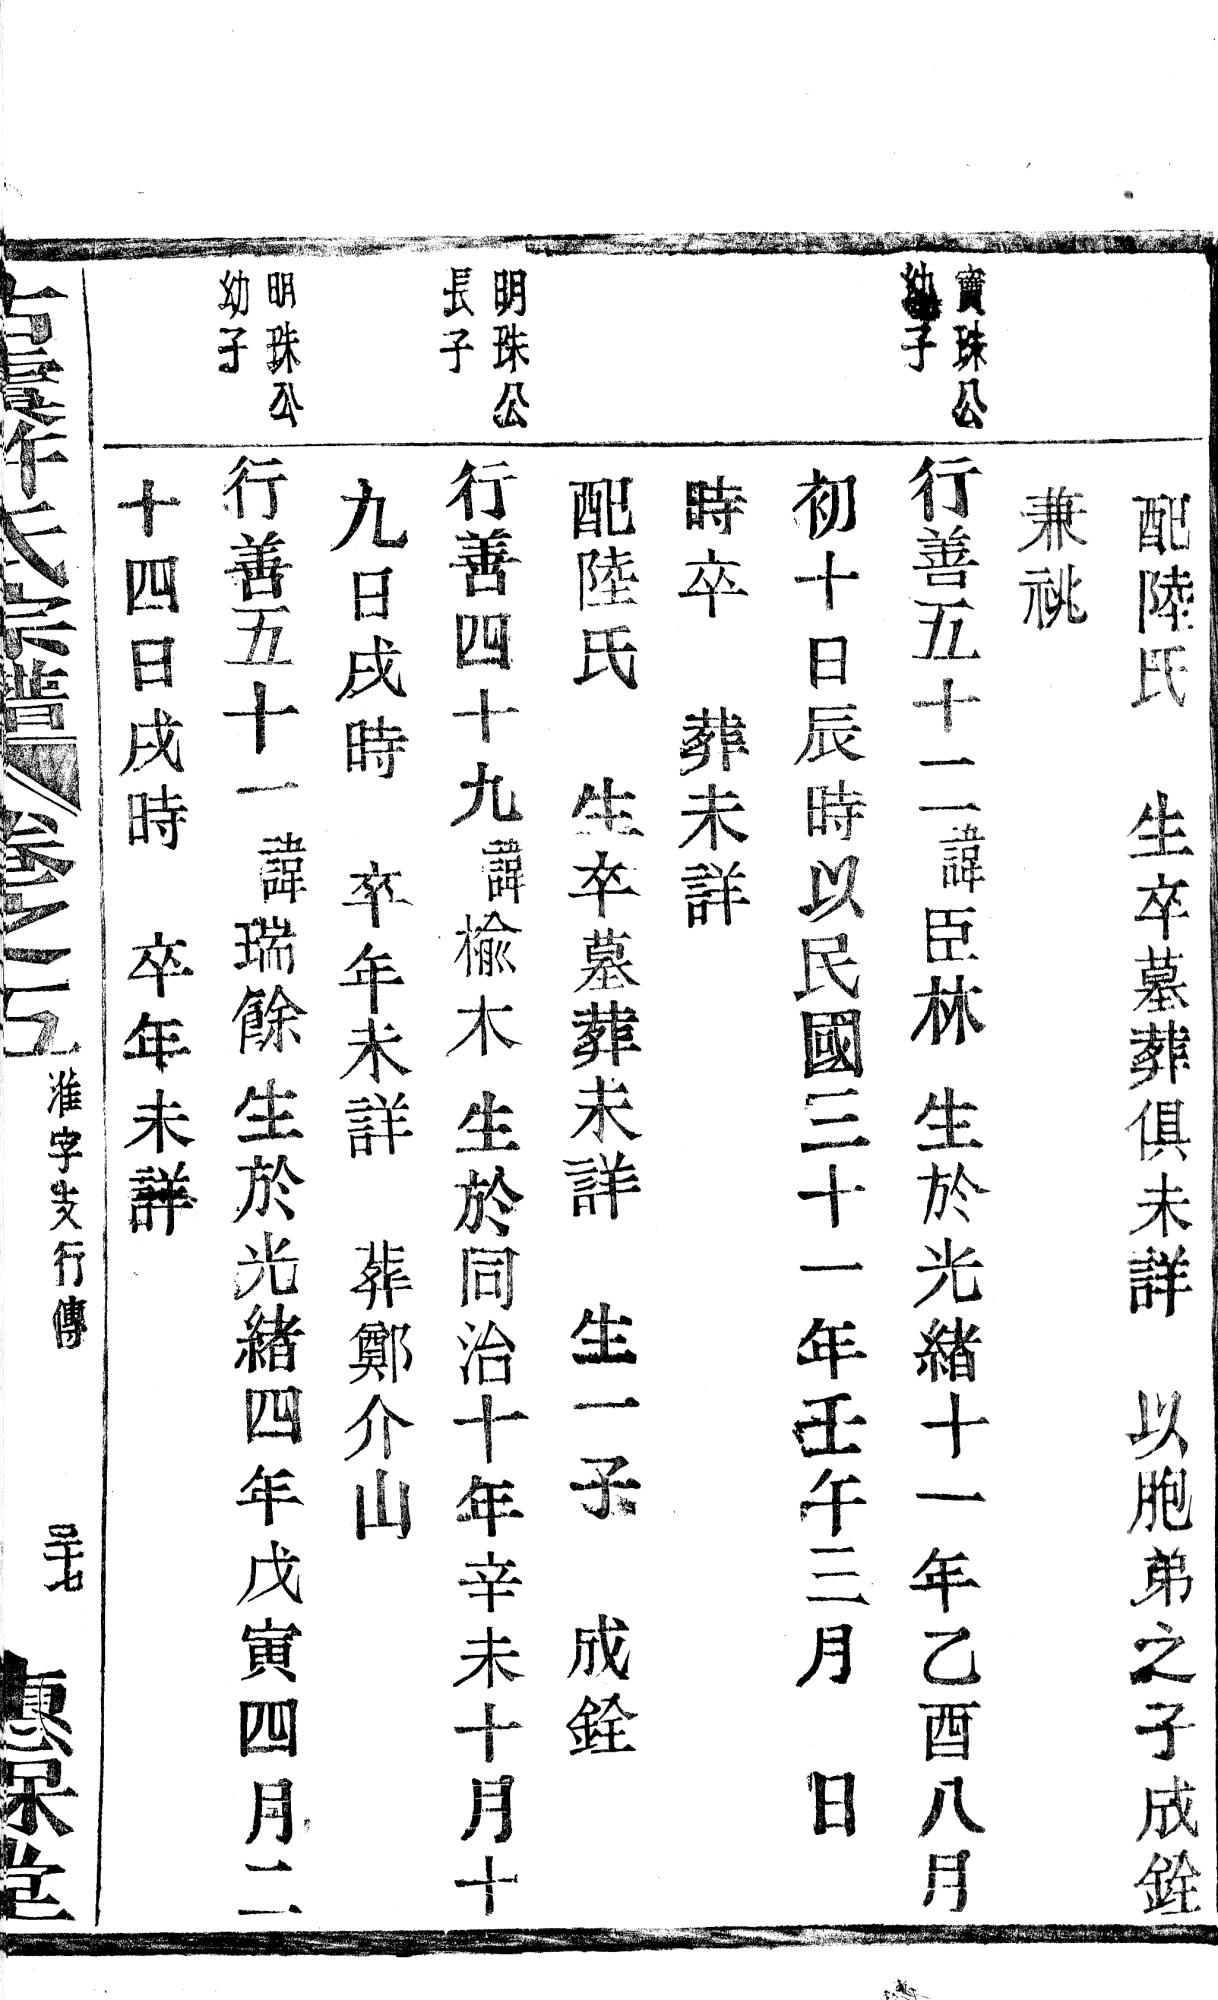 配陸氏　生卒墓葬俱未詳　以胞弟之子成銓
兼祧
寶珠公
幼子
行善五十二諱臣林　生於光緒十一年乙酉八月
初十日辰時以民國三十一年壬午三月　日
時卒　葬未詳
配陸氏　生卒墓葬未詳　生一子　成銓
明珠公
長子
行善四十九諱榆木　生於同治十年辛未十月十
九日戌時　卒年未詳　葬鄭介山
明珠公
幼子
行善五十一諱瑞餘　生於光緒四年戊寅四月二
十四日戌時　卒年未詳
氏宗譜　卷之五　淮字支行傳　三十七